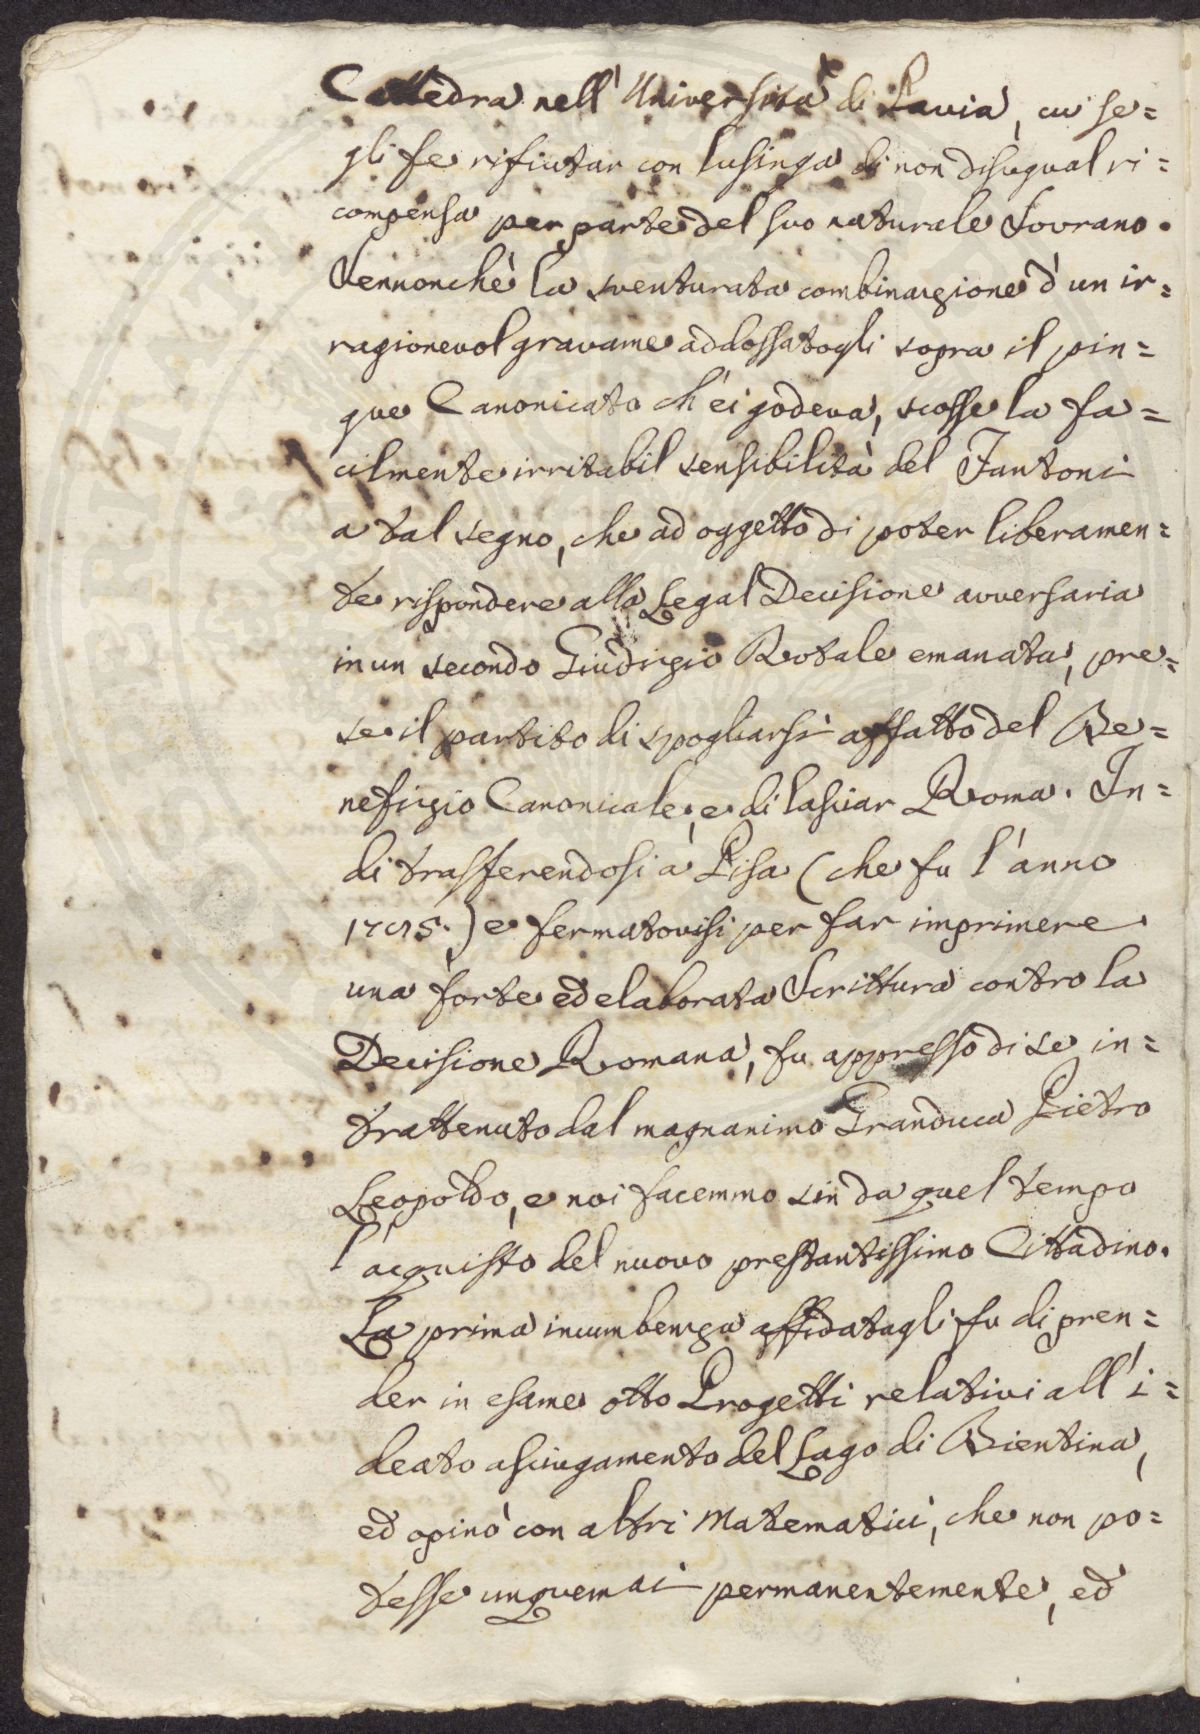 Cattedra nell' Università di Pavia, cui se=
gli fe rifiutar con lusinga di non disugual ri=
compensa per parte del suo naturale Sovrano.
Sennonchè la sventurata combinazione d'un ir=
ragionevol gravame addossatogli sopra il pin=
gue Canonicato ch'ei godeva, scosse la fa=
cilmente irritabil sensibilità del Fantoni
a tal segno, che ad oggetto di poter liberamen=
te rispondere alla Legal Decisione avversaria
in un secondo Giudizio Rotale emanata, pre=
se il partito di spogliarsi affatto del Be=
nefizio Canonicale, e di lasciar Roma. In=
di trasferendosi a Pisa (che fu l'anno
) e fermatovisi per far imprimere
una forte ed elaborata Scrittura contro la
Decisione Romana, fu appresso di se in=
trattenuto dal magnanimo Granduca Pietro
Leopoldo, e noi facemmo sin da quel tempo
l'acquisto del nuovo prestantissimo Cittadino.
La prima incumbenza affidatagli fu di pren=
der in esame otto Progetti relativi all'i=
deato asciugamento del Lago di Bientina,
ed opinò con altri Matematici, che non po=
tesse unquemai permanentemente, ed